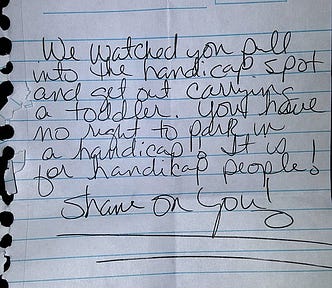 We watched you pull
into the handicap spot
and get out carrying
a toddler. You have
no right to park in
a handicap! It is
for handicap people!
Shame on You!